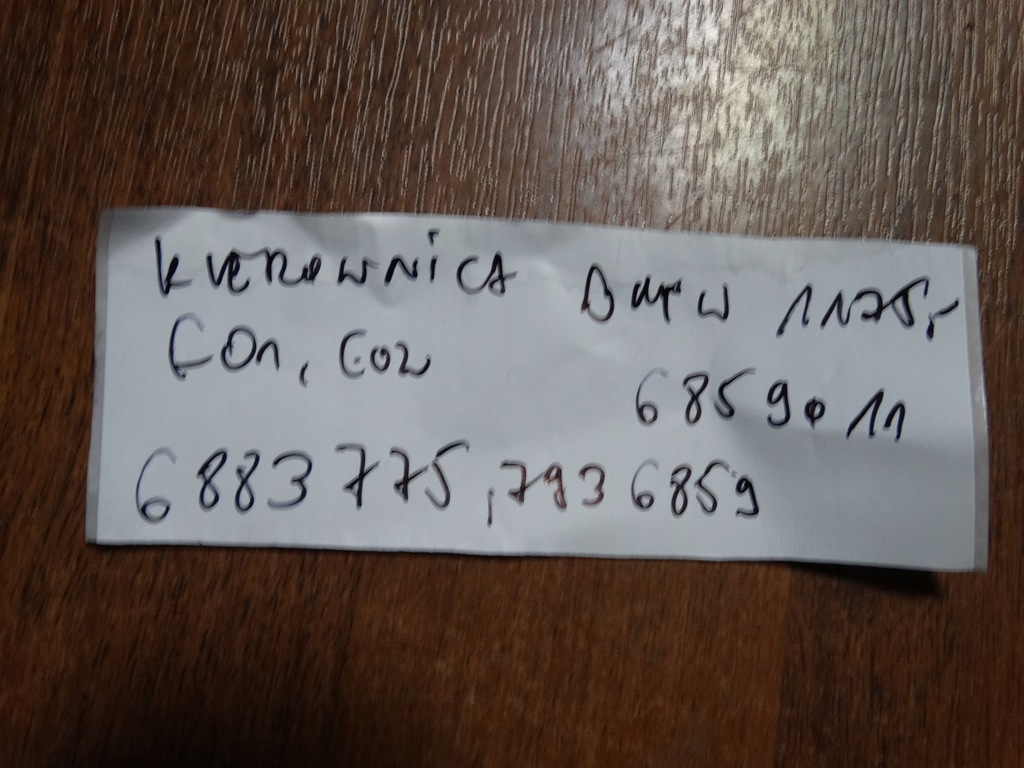 KIEROWNICA BMW 1175,-
E01, E02
6859011
6883775, 7936859